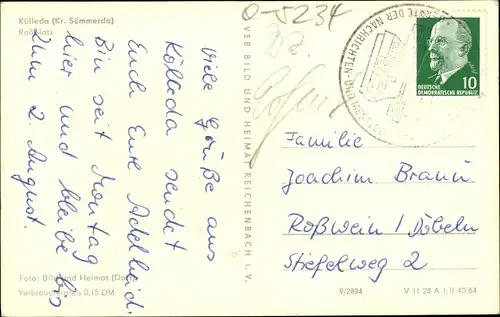 Kölleda (Kr. Sömmerda)
Roßplatz
Viele Grüße aus
Kölleda sendet
Euch Eure Adelheid.
Bin seit Montag
hier und bleibe bis
zum 2. August.
Foto: Bild und Heimat
Verbraucherpreis 0,15 DM
VEB BILD UND HEIMAT REICHENBACH i. V.
O-5234
DER NACHRICHTEN- UND
10
DEUTSCHE
DEMOKRATISCHE REPUBLIK
Familie
Joachim Braun
Roßwein / Döbeln
Stiefelweg 2
9/2894
V 11 28 A 1/B 40/64